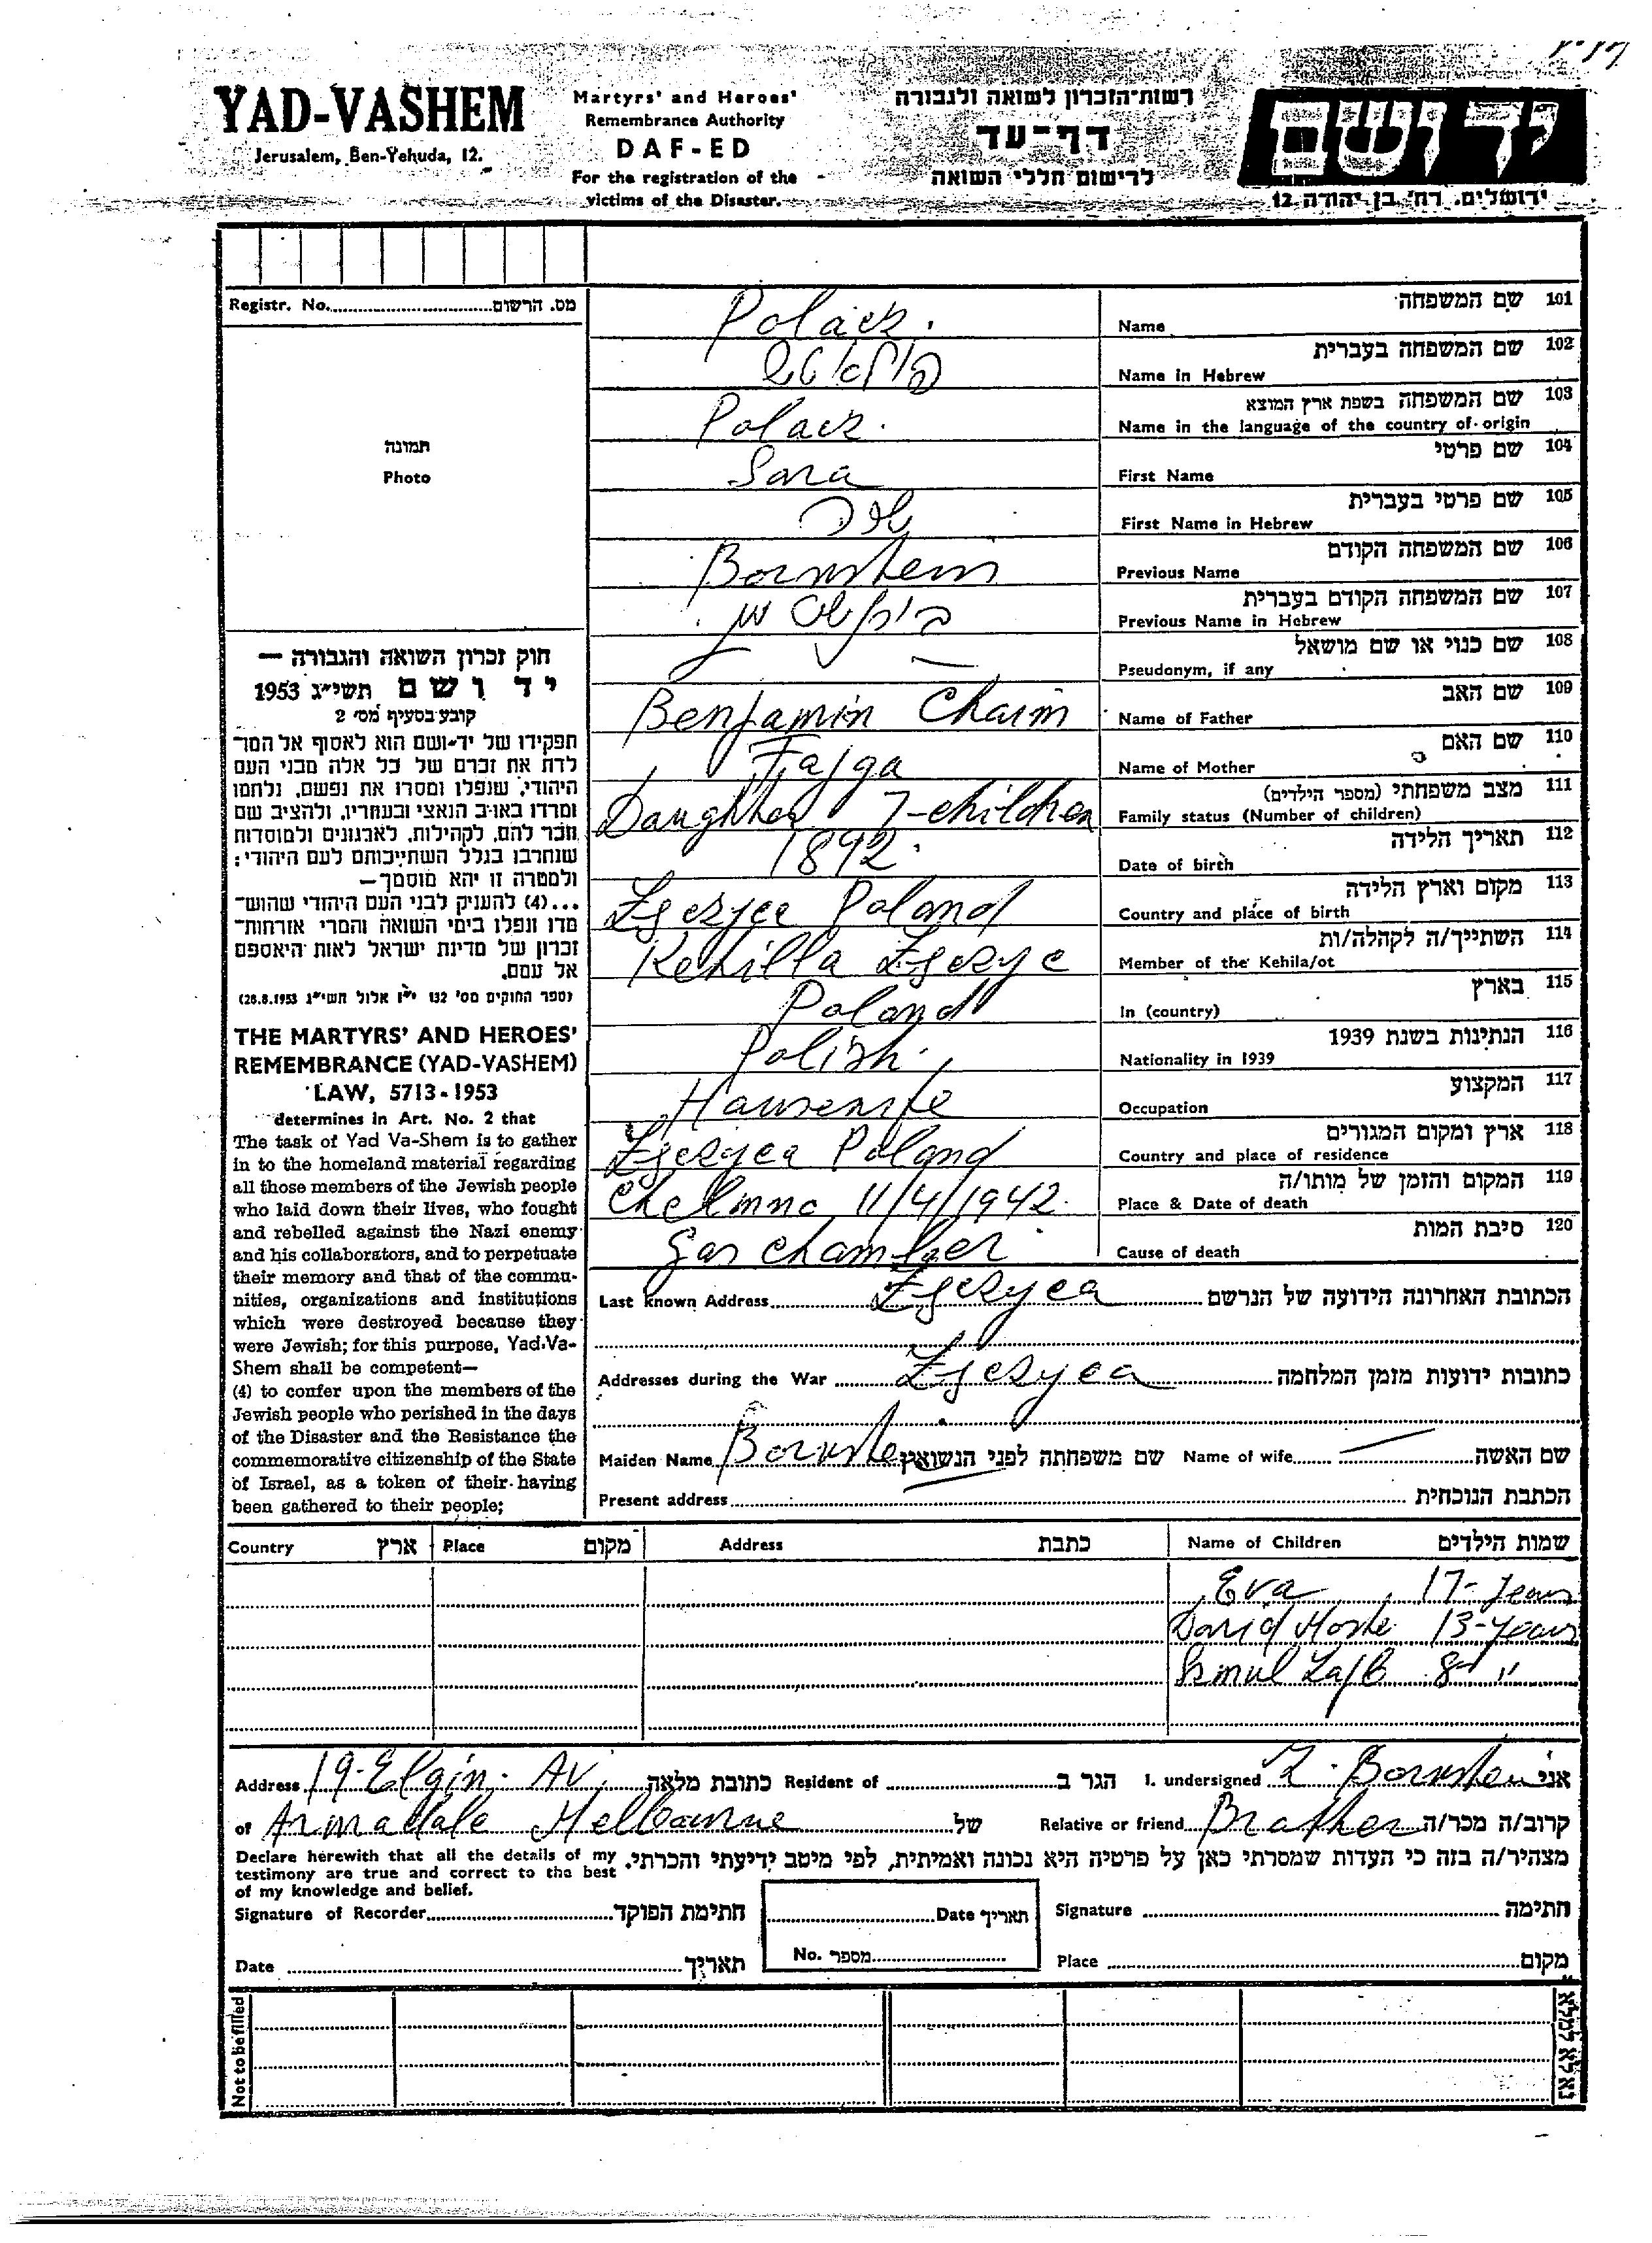 YAD-VASHEM
Jerusalem, Ben-Yehuda, 12.
Martyrs' and Heroes'
Remembrance Authority
DAF-ED
For the registration of the
victims of the Disaster.
רשות-הזכרון לשואה ולגבורה
דף-עד
לרישום חללי השואה
יד ושם
ירושלים, רח' בן יהודה 12
Registr. No. מס. הרשום
תמונה
Photo
חוק זכרון השואה והגבורה —
יד ושם תשי״ג 1953
קובע בסעיף מס' 2
תפקידו של יד-ושם הוא לאסוף אל המו־
לדת את זכרם של כל אלה מבני העם
היהודי, שנפלו ומסרו את נפשם, נלחמו
ומרדו באויב הנאצי ובעוזריו, ולהציב שם
וזכר להם, לקהילות, לארגונים ולמוסדות
שנחרבו בגלל השתייכותם לעם היהודי;
ולמטרה זו יהא מוסמך—
...(4) להעניק לבני העם היהודי שהוש־
מדו ונפלו בימי השואה והמרי אזרחות־
זכרון של מדינת ישראל לאות היאספם
אל עמם.
(ספר החוקים מס' 132 י״ז אלול תשי״ג 28.8.1953)
THE MARTYRS' AND HEROES'
REMEMBRANCE (YAD-VASHEM)
LAW, 5713-1953
determines in Art. No. 2 that
The task of Yad Va-Shem is to gather
in to the homeland material regarding
all those members of the Jewish people
who laid down their lives, who fought
and rebelled against the Nazi enemy
and his collaborators, and to perpetuate
their memory and that of the commu-
nities, organizations and institutions
which were destroyed because they
were Jewish; for this purpose, Yad-Va-
Shem shall be competent—
(4) to confer upon the members of the
Jewish people who perished in the days
of the Disaster and the Resistance the
commemorative citizenship of the State
of Israel, as a token of their having
been gathered to their people;
Polack. Name שם המשפחה 101
פולאטש Name in Hebrew שם המשפחה בעברית 102
Polack. Name in the language of the country of origin שם המשפחה בשפת ארץ המוצא 103
Sara First Name שם פרטי 104
שרה First Name in Hebrew שם פרטי בעברית 105
Bornstein Previous Name שם המשפחה הקודם 106
Previous Name in Hebrew שם המשפחה הקודם בעברית 107
Pseudonym, if any שם כנוי או שם מושאל 108
Benjamin Chaim Name of Father שם האב 109
Fajga Name of Mother שם האם 110
Daughter 7-children Family status (Number of children) מצב משפחתי (מספר הילדים) 111
1892. Date of birth תאריך הלידה 112
Zgerzjea Poland Country and place of birth מקום וארץ הלידה 113
Kehilla Zgerzye Member of the Kehila/ot השתייך/ה לקהלה/ות 114
Poland In (country) בארץ 115
Polish. Nationality in 1939 הנתינות בשנת 1939 116
Hausewife Occupation המקצוע 117
Zgerzyea Poland Country and place of residence ארץ ומקום המגורים 118
Chelmno 11/4/1942. Place & Date of death המקום והזמן של מותו/ה 119
Gas chamber Cause of death סיבת המות 120
Last known Address Zgerzyea הכתובת האחרונה הידועה של הנרשם
Addresses during the War Zgerzyea כתובות ידועות מזמן המלחמה
Maiden Name Bornstein שם משפחתה לפני הנשואין Name of wife שם האשה
Present address הכתבת הנוכחית
Country ארץ Place מקום Address כתבת Name of Children שמות הילדים
Eva 17-years
David Moshe 13-years
Szmul Lajb 8- "
Address 19-Elgin. Av. כתובת מלאה Resident of הגר ב I. undersigned Z. Bornstein אני
of Armadale Melbourne של Relative or friend Brother קרוב/ה מכר/ה
Declare herewith that all the details of my
testimony are true and correct to the best
of my knowledge and belief.
מצהיר/ה בזה כי העדות שמסרתי כאן על פרטיה היא נכונה ואמיתית, לפי מיטב ידיעתי והכרתי.
Signature of Recorder חתימת הפוקד Date תאריך Signature חתימה
Date תאריך No. מספר Place מקום
Not to be filled נא לא למלא